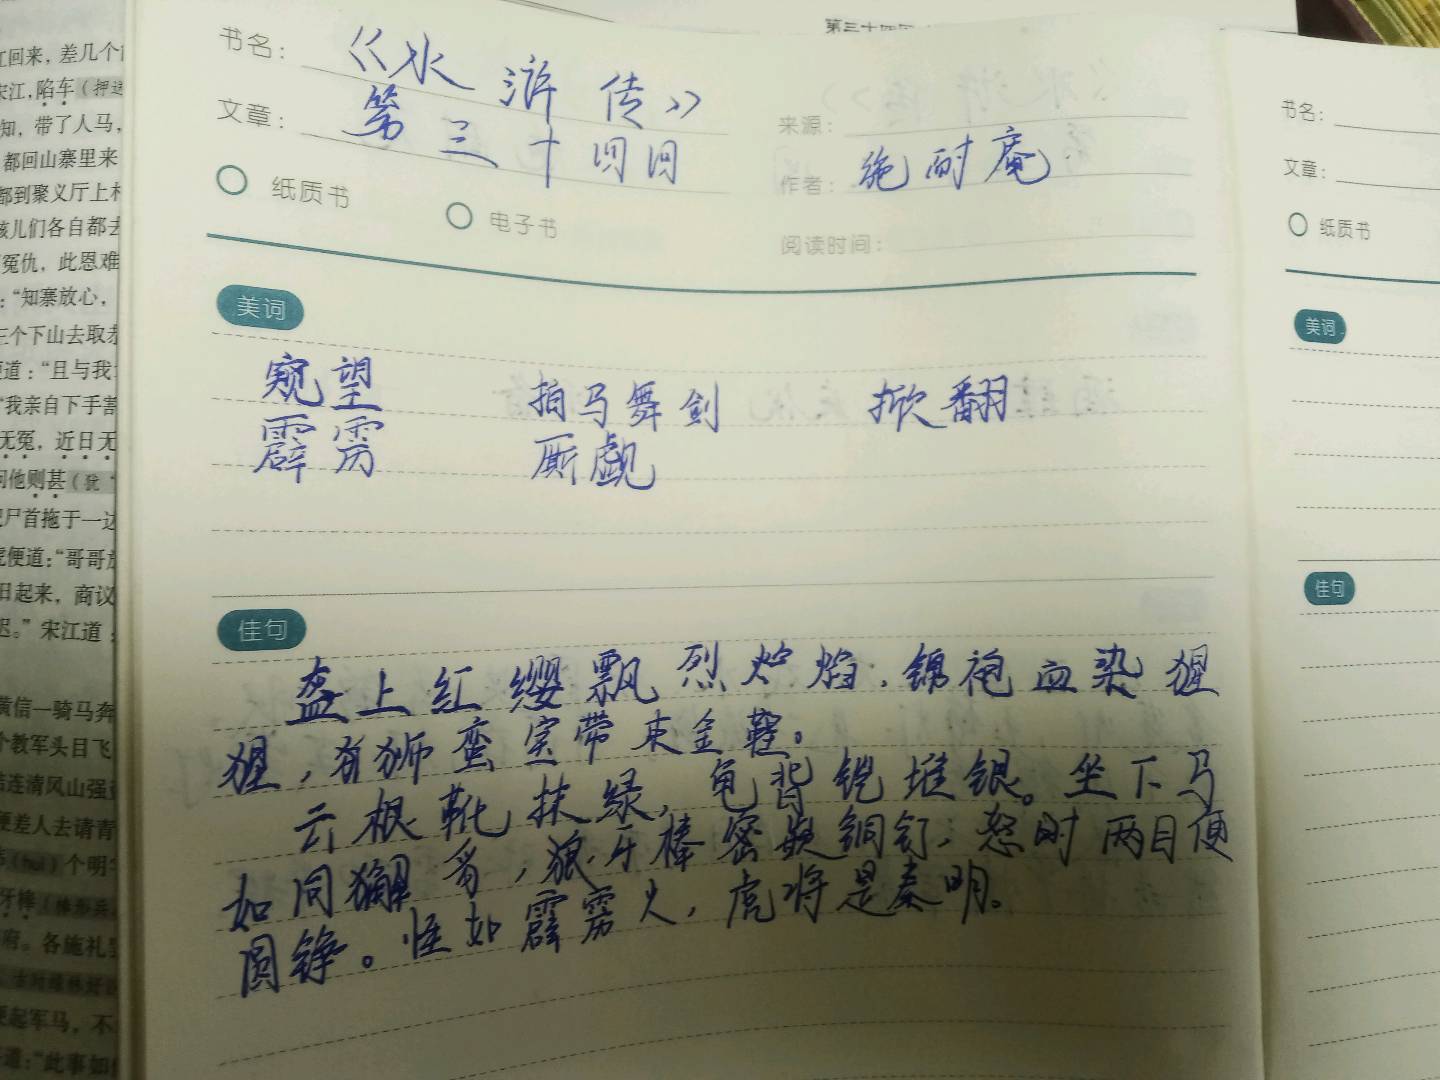 第三十四回
江回来，差几个
宋江，陷车（押送
知，带了人马，
都回山寨里来
都到聚义厅上
孩儿们各自都去
冤仇，此恩难
：“知寨放心，
三个下山去取
便道：“且与我
“我亲自下手割
无冤，近日无
问他则甚（犹“
尸首拖于一边
虎便道：“哥哥
日起来，商议
迟。”宋江道：
黄信一骑马奔
个教军头目飞
结连清风山强
便差人去请青
个明
牙棒
府。各施礼
便起军马，不
道：“此事如
书名：《水浒传》
文章：第三十四回
来源：
作者：施耐庵
纸质书 电子书
阅读时间：
美词
窥望 拍马舞剑 掀翻
霹雳 厮觑
佳句
盔上红缨飘烈焰，锦袍血染猩
猩，狮蛮宝带束金鞓。
云根靴抹绿，龟背铠堆银。坐下马
如同獬豸，狼牙棒密嵌铜钉，怒时两目便
圆铮。性如霹雳火，虎将是秦明。
书名：
文章：
纸质书
美词
佳句